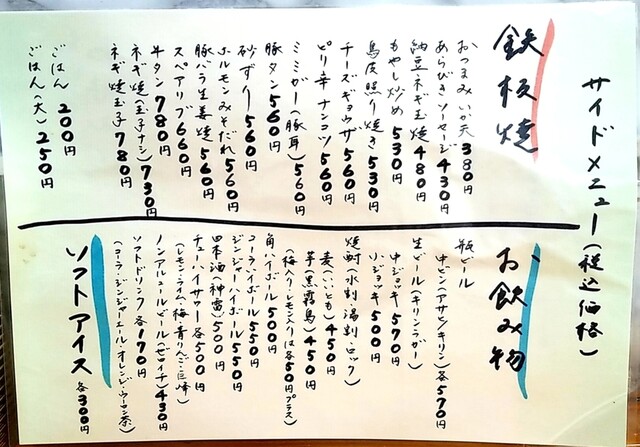 サイドメニュー(税込価格)
鉄板焼
おつまみいか天380円
あらびきソーセージ430円
納豆ネギ玉焼480円
もやし炒め530円
鳥皮照り焼き530円
チーズギョウザ560円
ピリ辛ナンコツ560円
ミミガー(豚耳)560円
豚タン560円
砂ずり560円
ホルモンみそだれ560円
豚バラ生姜焼560円
スペアリブ660円
牛タン780円
ネギ焼(玉子ナシ)730円
ネギ焼玉子780円
ごはん200円
ごはん(大)250円
お飲み物
瓶ビール
中ビン(アサヒ/キリン)各570円
生ビール(キリンラガー)
中ジョッキ570円
小ジョッキ500円
焼酎(水割・湯割・ロック)
麦(いいとも)450円
芋(黒霧島)450円
(梅入り・レモン入りは各50円プラス)
角ハイボール500円
コーラハイボール550円
ジンジャーハイボール550円
日本酒(神雷)500円
チューハイサワー各500円
(レモン・ライム・梅・青りんご・巨峰)
ノンアルコールビール(ゼロイチ)430円
ソフトドリンク各170円
(コーラ・ジンジャーエール・オレンジ・ウーロン茶)
ソフトアイス各300円